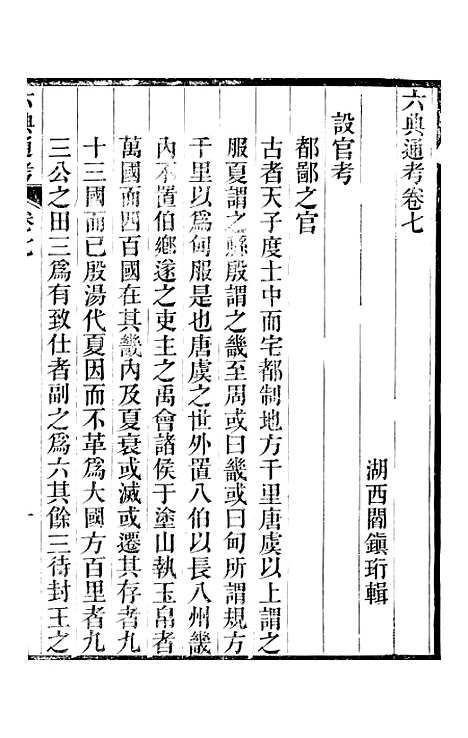 六典通考卷七
湖西閻鎭珩輯
設官考
都鄙之官
古者天子度土中而宅都制地方千里唐虞以上謂之
服夏謂之縣殷謂之畿至周或曰畿或曰甸所謂規方
千里以爲甸服是也唐虞之世外置八伯以長八州畿
內不置伯鄉遂之吏主之禹會諸侯于塗山執玉帛者
萬國而四百國在其畿內及夏衰或滅或遷其存者九
十三國而已殷湯代夏因而不革爲大國方百里者九
三公之田三爲有致仕者副之爲六其餘三待封王之
六典通考 卷七 一